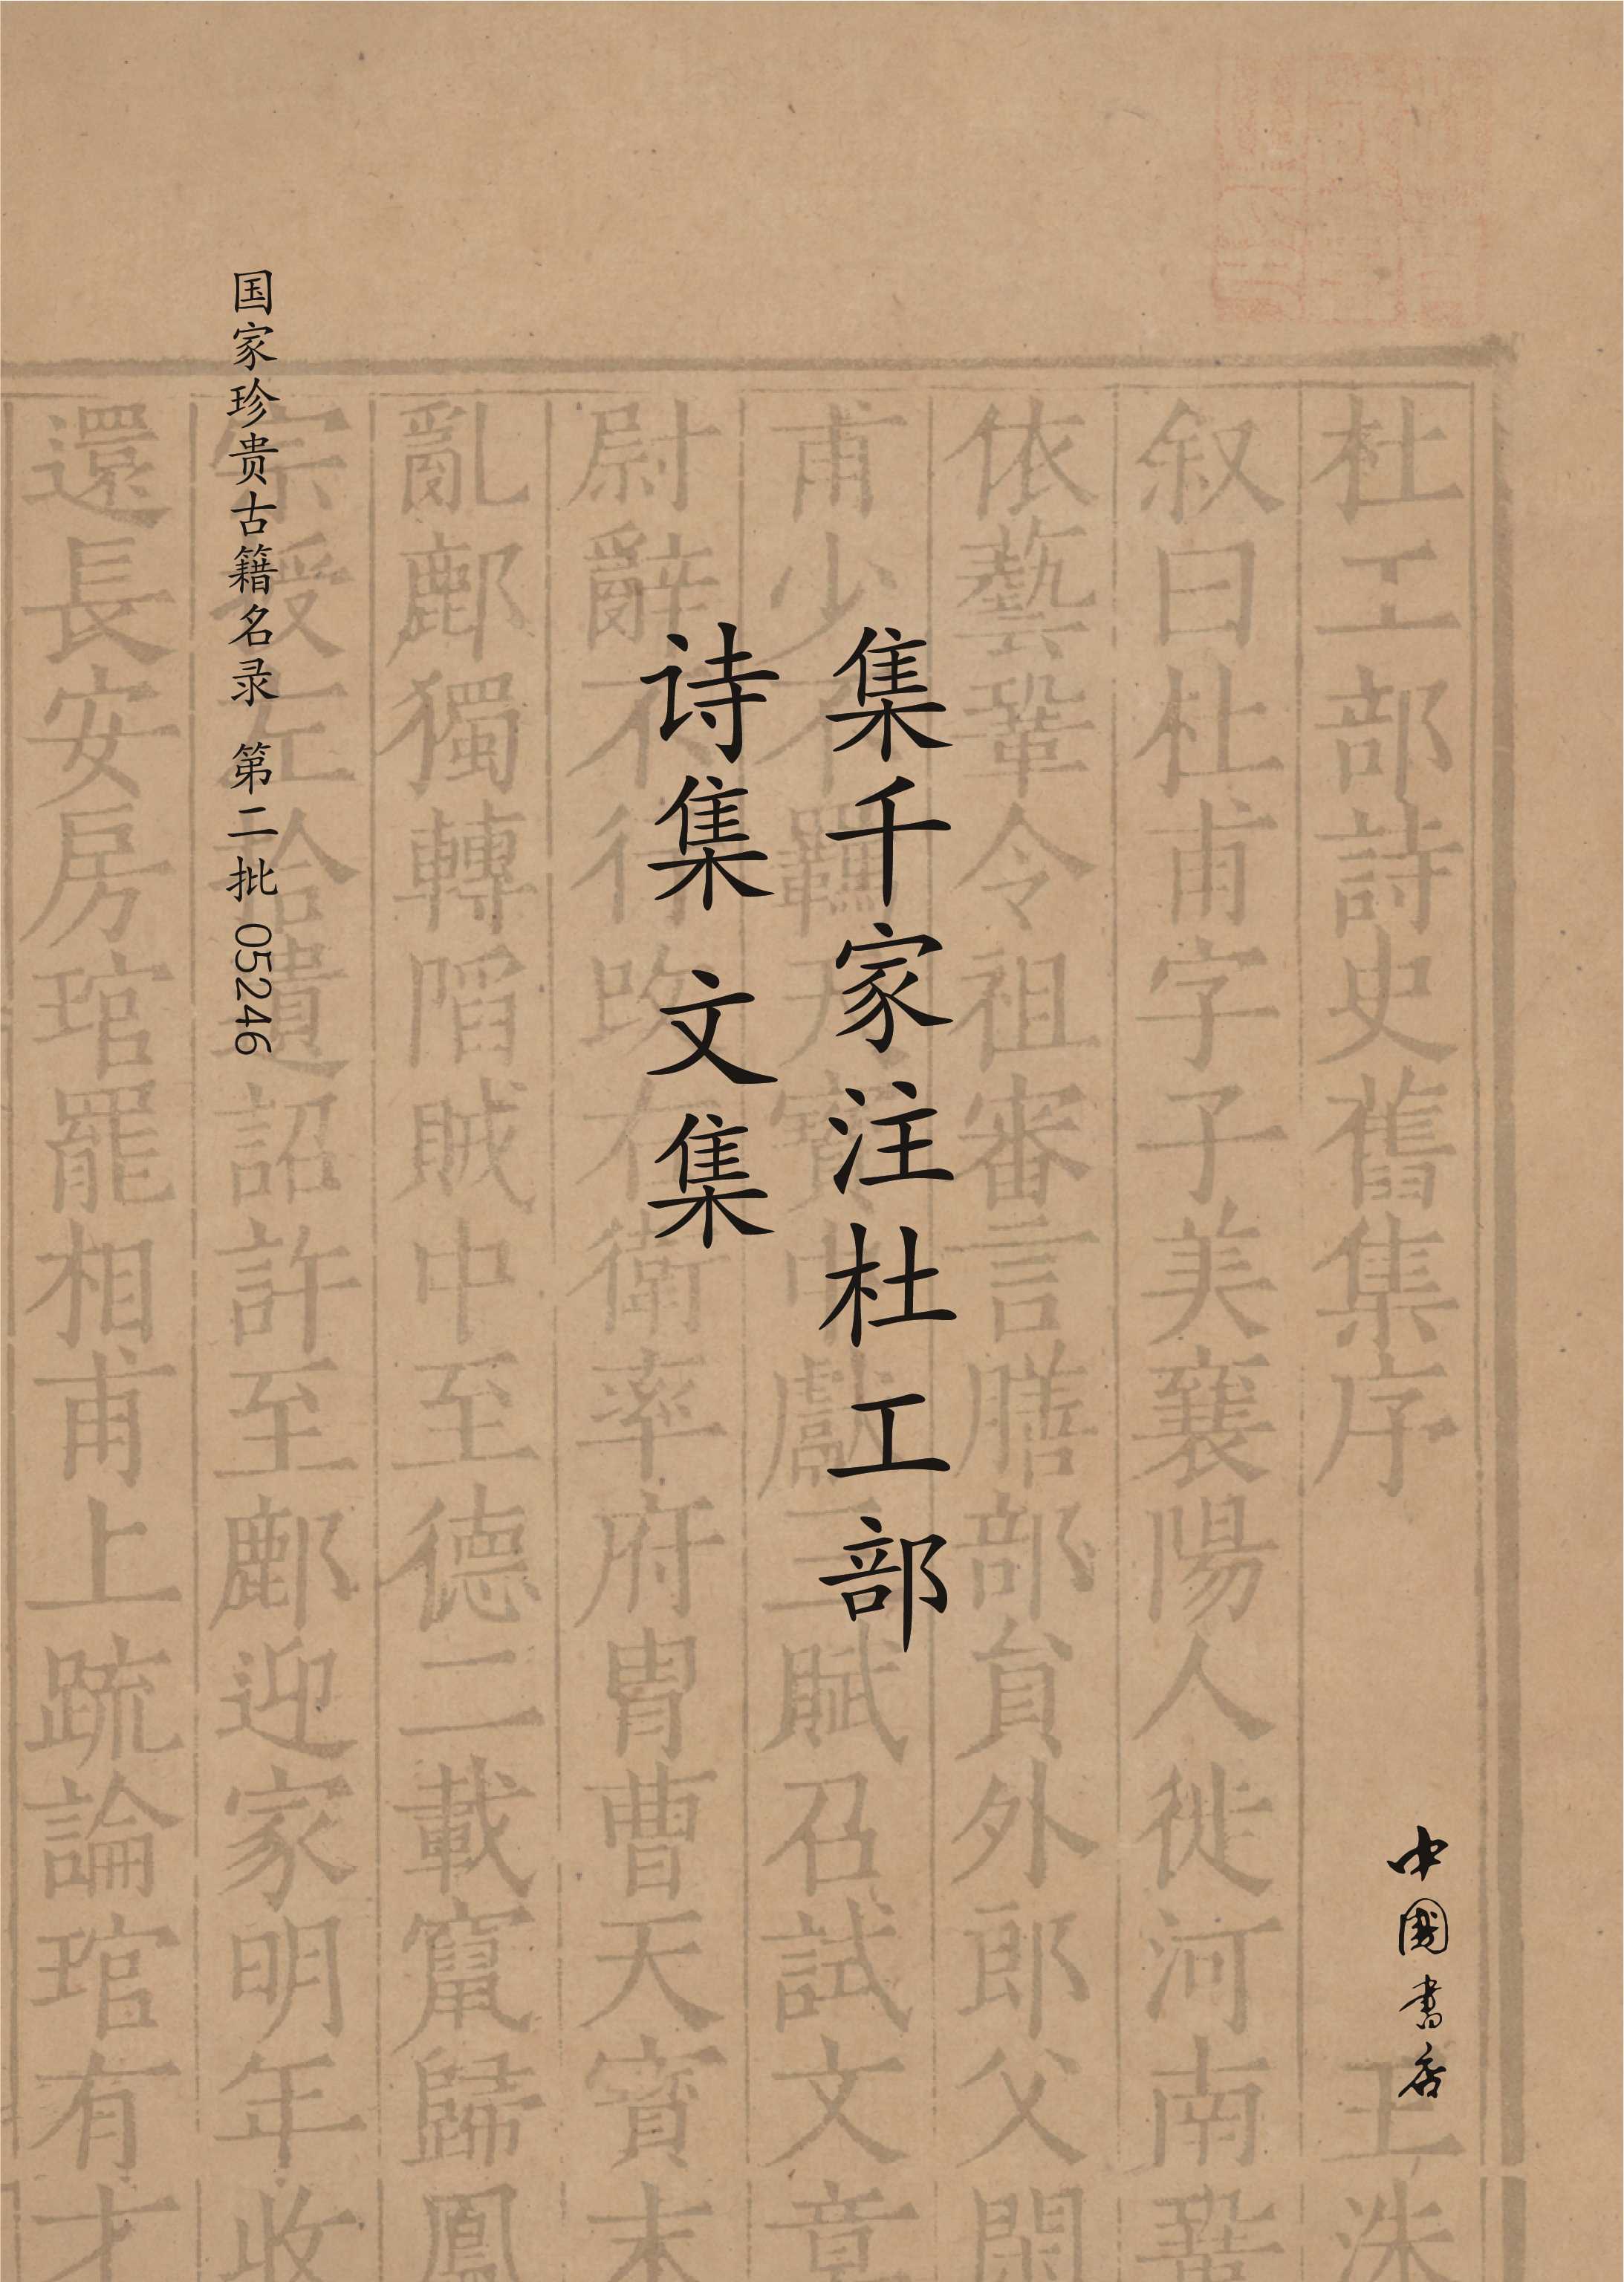 集千家注杜工部
诗集 文集
国家珍贵古籍名录 第二批 05246
中國書店
杜工部詩史舊集序 王洙
叙曰杜甫字子美襄陽人徙河南鞏
依藝鞏令祖審言膳部貟外郎父閑
甫少不羈天寶中獻三賦召試文章
尉辭不行改右衛率府胄曹天寳末
亂鄜獨轉陷賊中至德二載竄歸鳳
宗授左拾遺詔許至鄜迎家明年收
還長安房琯罷相甫上疏論琯有才